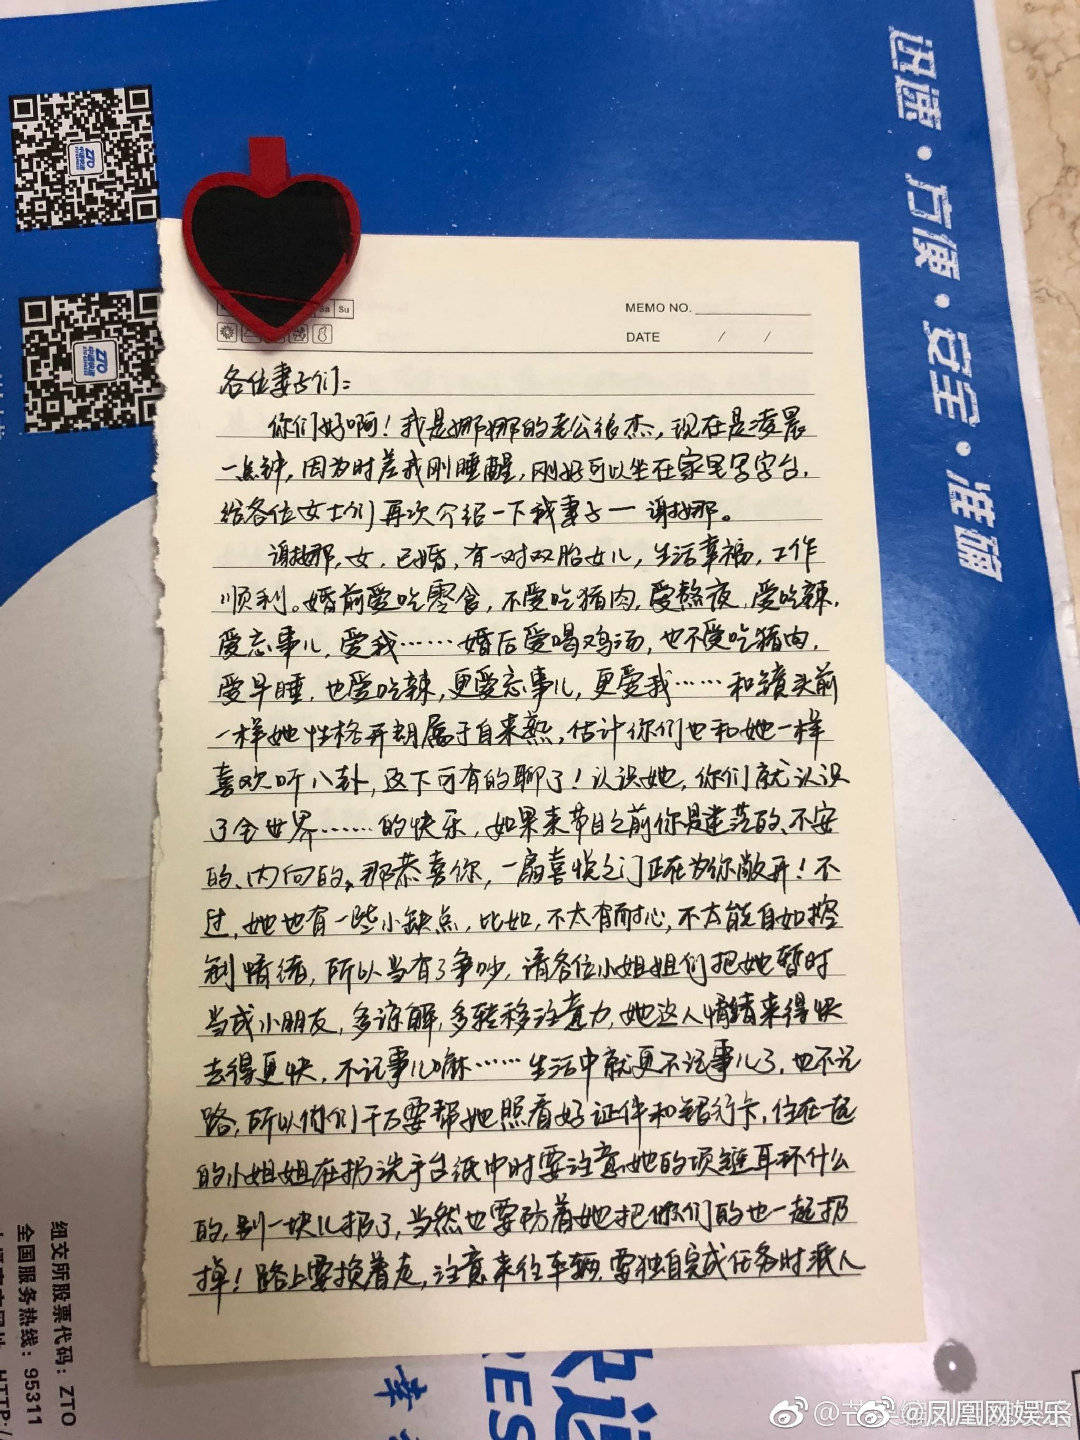 迅速·方便·安全·准确
ZTO
中通快递
ZTO
中通快递
Sa Su
MEMO NO.
DATE / /
各位妻子们：
你们好啊！我是娜娜的老公张杰，现在是凌晨
一点钟，因为时差我刚睡醒，刚好可以坐在家里写字台，
给各位女士们再次介绍一下我妻子—谢娜。
谢娜，女，已婚，有一对双胎女儿，生活幸福，工作
顺利。婚前爱吃零食，不爱吃猪肉，爱熬夜，爱吃辣，
爱忘事儿，爱我……婚后爱喝鸡汤，也不爱吃猪肉，
爱早睡，也爱吃辣，更爱忘事儿，更爱我……和镜头前
一样她性格开朗属于自来熟，估计你们也和她一样
喜欢听八卦，这下可有的聊了！认识她，你们就认识
了全世界……的快乐，如果来节目之前你是迷茫的、不安
的、内向的，那恭喜你，一扇喜悦之门正在为你敞开！不
过，她也有一些小缺点，比如，不太有耐心，不太能自如控
制情绪，所以当有了争吵，请各位小姐姐们把她暂时
当成小朋友，多谅解，多转移注意力，她这人情绪来得快
去得更快，不记事儿嘛……生活中就更不记事儿了，也不记
路，所以你们千万要帮她照看好证件和银行卡，住在一起
的小姐姐在扔洗手台纸巾时要注意她的项链耳环什么
的，别一块儿扔了，当然也要防着她把你们的也一起扔
掉！路上要挽着走，注意来往车辆，要独自完成任务时派人
纽交所股票代码：ZTO
全国服务热线：95311
HTTP:/
快递
RES
@凤凰网娱乐